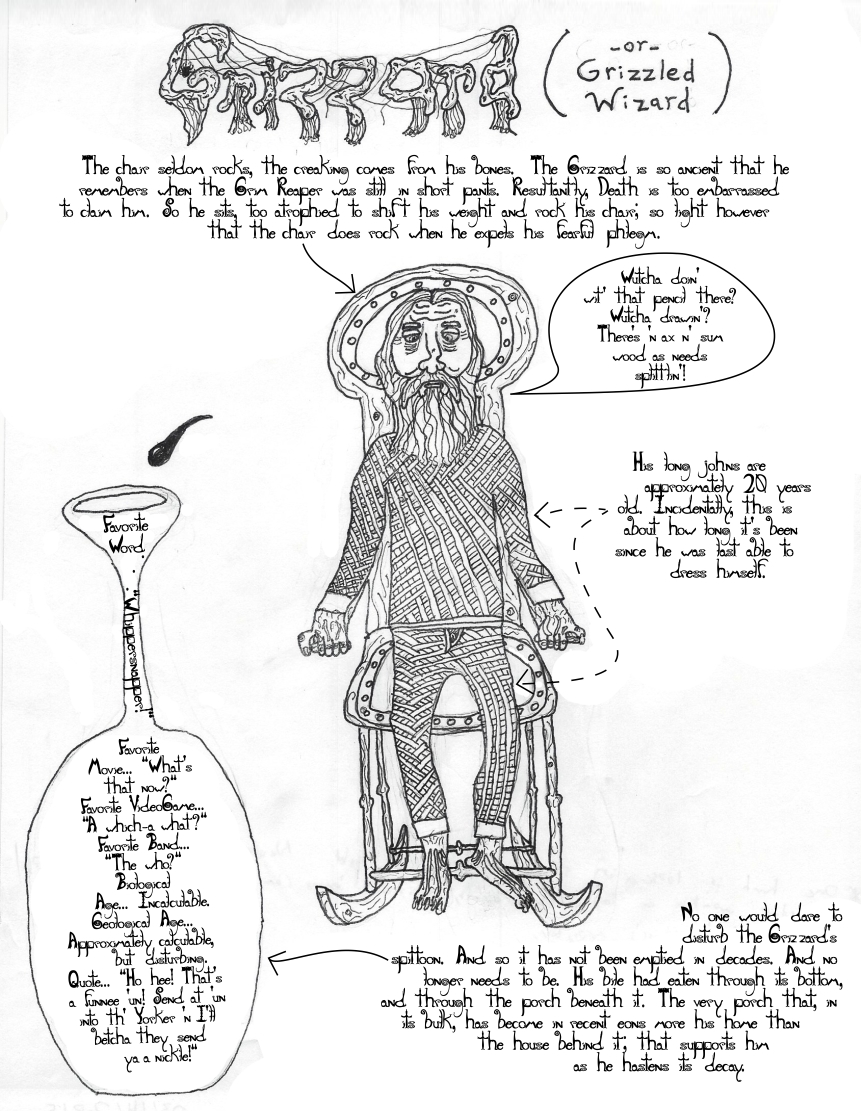 Grizzard
(-or-
Grizzled
Wizard)
The chair seldom rocks, the creaking comes from his bones. The Grizzard is so ancient that he
remembers when the Grim Reaper was still in short pants. Resultantly, Death is too embarrassed
to claim him. So he sits, too atrophied to shift his weight and rock his chair; so light however
that the chair does rock when he expels his fearful phlegm.
Wutcha doin'
wit' that pencil there?
Wutcha drawin'?
There's 'n ax n' sum
wood as needs
splittin'!
His long johns are
approximately 20 years
old. Incidentally, this is
about how long it's been
since he was last able to
dress himself.
Favorite
Word. . .
"Whippersnapper!"
Favorite
Movie... "What's
that now?"
Favorite VideoGame...
"A which-a what?"
Favorite Band...
"The who?"
Biological
Age... Incalculable.
Geological Age...
Approximately calculable,
but disturbing.
Quote... "Ho hee! That's
a funnee 'un! Send at 'un
into th' Yorker 'n I'll
betcha they send
ya a nickle!"
No one would dare to
disturb the Grizzard's
spittoon. And so it has not been emptied in decades. And no
longer needs to be. His bile had eaten through its bottom,
and through the porch beneath it. The very porch that, in
its bulk, has become in recent eons more his home than
the house behind it; that supports him
as he hastens its decay.